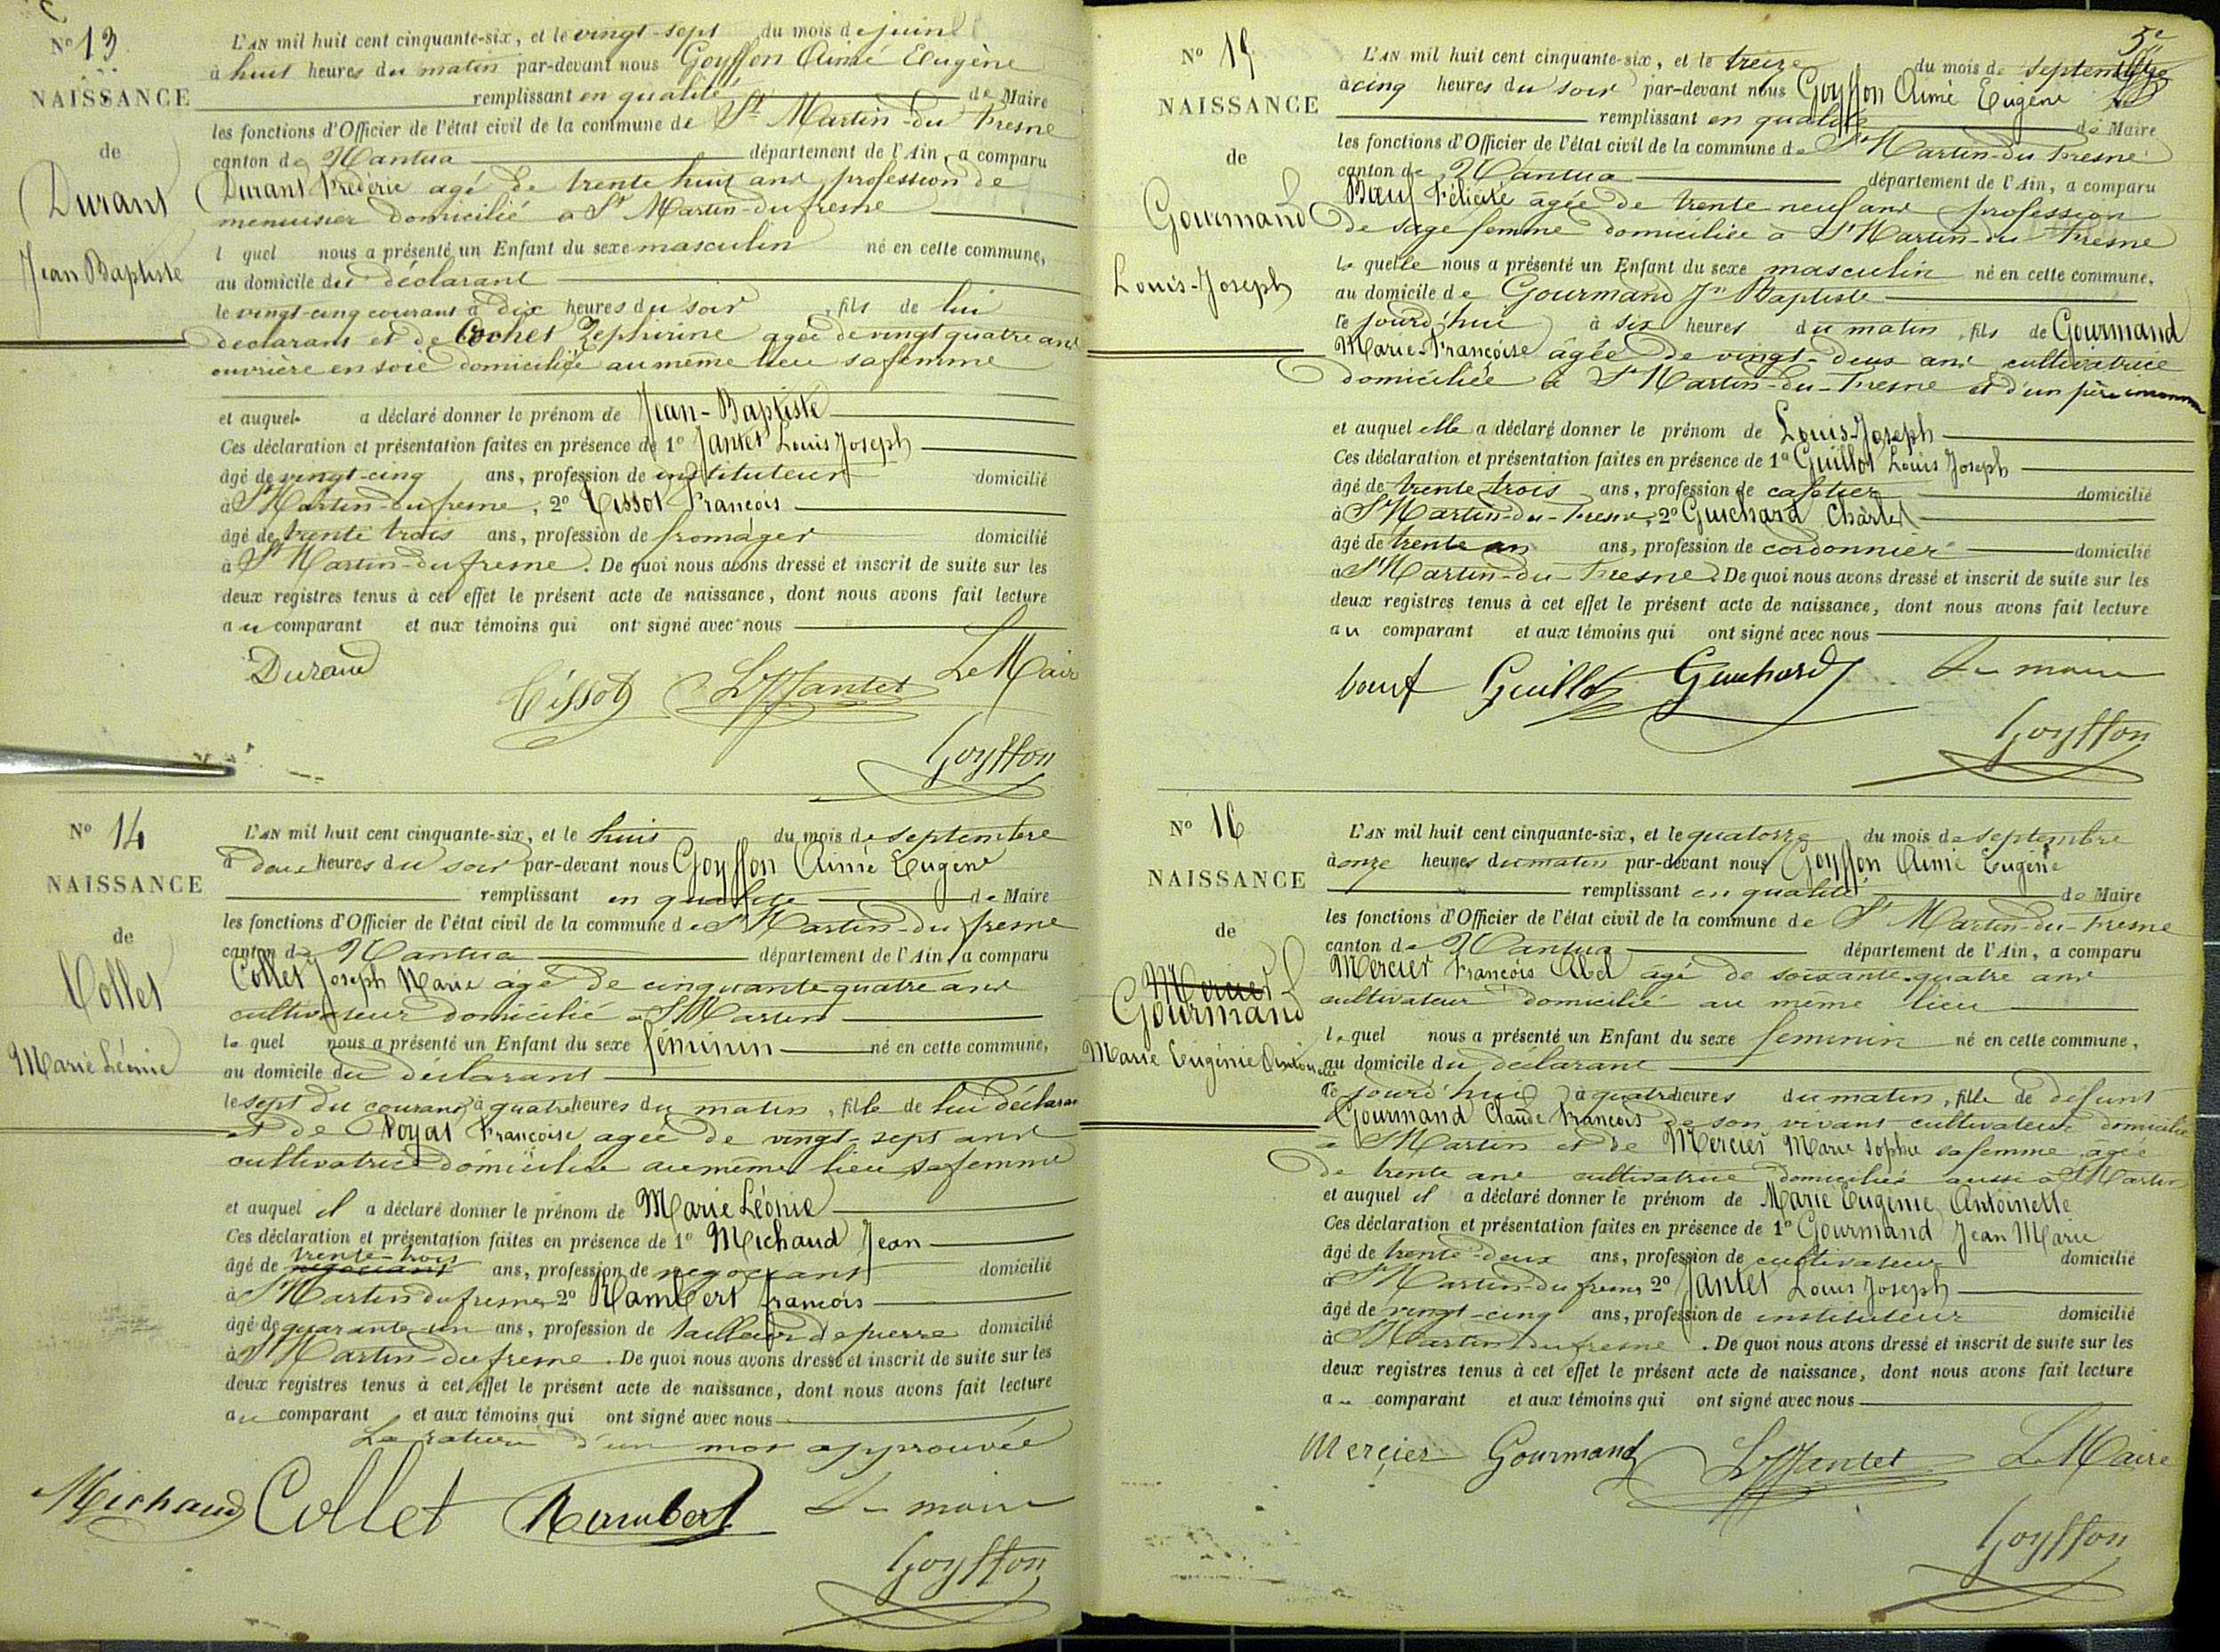 Nº 13
NAISSANCE
de
Durant
Jean Baptiste
L'AN mil huit cent cinquante-six, et le vingt-sept du mois de juin
à huit heures du matin par-devant nous Goyffon Aimé Eugène
remplissant en qualité de Maire
les fonctions d'Officier de l'état civil de la commune de St Martin-du Fresne
canton de Nantua département de l'Ain, a comparu
Durant Frédéric agé de trente huit ans, profession de
menuisier domicilié à St Martin-du fresne
l quel nous a présenté un Enfant du sexe masculin né en cette commune,
au domicile du déclarant
le vingt-cinq courant à dix heures du soir, fils de lui
déclarant et de Cochet Zéphirine agée de vingt quatre ans
ouvrière en soie domiciliée au même lieu sa femme
et auquel a déclaré donner le prénom de Jean-Baptiste
Ces déclaration et présentation faites en présence de 1º Jantet Louis Joseph
âgé de vingt-cinq ans, profession de instituteur domicilié
à St Martin-du fresne, 2º Tissot François
âgé de trente trois ans, profession de fromager domicilié
à St Martin-du fresne. De quoi nous avons dressé et inscrit de suite sur les
deux registres tenus à cet effet le présent acte de naissance, dont nous avons fait lecture
au comparant et aux témoins qui ont signé avec nous
Durand Tissot LJJantet Le Maire
Goyffon
Nº 14
NAISSANCE
de
Collet
Marie Léonie
L'AN mil huit cent cinquante-six, et le huit du mois de septembre
à deux heures du soir par-devant nous Goyffon Aimé Eugène
remplissant en qualité de Maire
les fonctions d'Officier de l'état civil de la commune de St Martin-du fresne
canton de Nantua département de l'Ain, a comparu
Collet Joseph Marie agé de cinquante quatre ans
cultivateur domicilié à St Martin
le quel nous a présenté un Enfant du sexe féminin né en cette commune,
au domicile du déclarant
le sept du courant à quatre heures du matin, fille de lui déclarant
et de Poyat Françoise agée de vingt-sept ans
cultivatrice domiciliée au même lieu sa femme
et auquel il a déclaré donner le prénom de Marie Léonie
Ces déclaration et présentation faites en présence de 1º Michaud Jean
trente-trois
âgé de negociant ans, profession de negociant domicilié
à St Martin du fresne 2º Rambert françois
âgé de quarante-un ans, profession de tailleur de pierre domicilié
à St Martin-du fresne. De quoi nous avons dressé et inscrit de suite sur les
deux registres tenus à cet effet le présent acte de naissance, dont nous avons fait lecture
au comparant et aux témoins qui ont signé avec nous
La rature d'un mot approuvée
Michaud Collet Rambert Le maire
Goyffon
5e
Nº 15
NAISSANCE
de
Gourmand
Louis-Joseph
L'AN mil huit cent cinquante-six, et le treize du mois de septembre
à cinq heures du soir par-devant nous Goyffon Aimé Eugène
remplissant en qualité de Maire
les fonctions d'Officier de l'état civil de la commune de St Martin-du Fresne
canton de Nantua département de l'Ain, a comparu
Bœuf Félicité âgée de trente neuf ans profession
de sage femme domiciliée à St Martin-du Fresne
la quelle nous a présenté un Enfant du sexe masculin né en cette commune,
au domicile de Gourmand Jn Baptiste
le jourd'hui à six heures du matin, fils de Gourmand
Marie-Françoise âgée de vingt-deux ans cultivatrice
domiciliée à St Martin-du-Fresne et d'un père inconnu
et auquel elle a déclaré donner le prénom de Louis-Joseph
Ces déclaration et présentation faites en présence de 1º Guillot Louis Joseph
âgé de trente trois ans, profession de cafetier domicilié
à St Martin-du-Fresne, 2º Guichard Charles
âgé de trente un ans, profession de cordonnier domicilié
à St Martin-du-Fresne. De quoi nous avons dressé et inscrit de suite sur les
deux registres tenus à cet effet le présent acte de naissance, dont nous avons fait lecture
au comparant et aux témoins qui ont signé avec nous
bœuf Guillot Guichard Le maire
Goyffon
Nº 16
NAISSANCE
de
Mercier
Gourmand
Marie Eugénie Antoinette
L'AN mil huit cent cinquante-six, et le quatorze du mois de septembre
à onze heures du matin par-devant nous Goyffon Aimé Eugène
remplissant en qualité de Maire
les fonctions d'Officier de l'état civil de la commune de St Martin-du-Fresne
canton de Nantua département de l'Ain, a comparu
Mercier François Abel âgé de soixante-quatre ans
cultivateur domicilié au même lieu
le quel nous a présenté un Enfant du sexe feminin né en cette commune,
au domicile du déclarant
le jourd'hui à quatre heures du matin, fille de défunt
Gourmand Claude François de son vivant cultivateur domicilié
à St Martin et de Mercier Marie Sophie sa femme agée
de trente ans cultivatrice domiciliée aussi à St Martin
et auquel il a déclaré donner le prénom de Marie Eugénie Antoinette
Ces déclaration et présentation faites en présence de 1º Gourmand Jean Marie
âgé de trente-deux ans, profession de cultivateur domicilié
à St Martin-du fresne 2º Jantet Louis Joseph
âgé de vingt-cinq ans, profession de instituteur domicilié
à St Martin du fresne. De quoi nous avons dressé et inscrit de suite sur les
deux registres tenus à cet effet le présent acte de naissance, dont nous avons fait lecture
au comparant et aux témoins qui ont signé avec nous
Mercier Gourmand LJJantet Le Maire
Goyffon